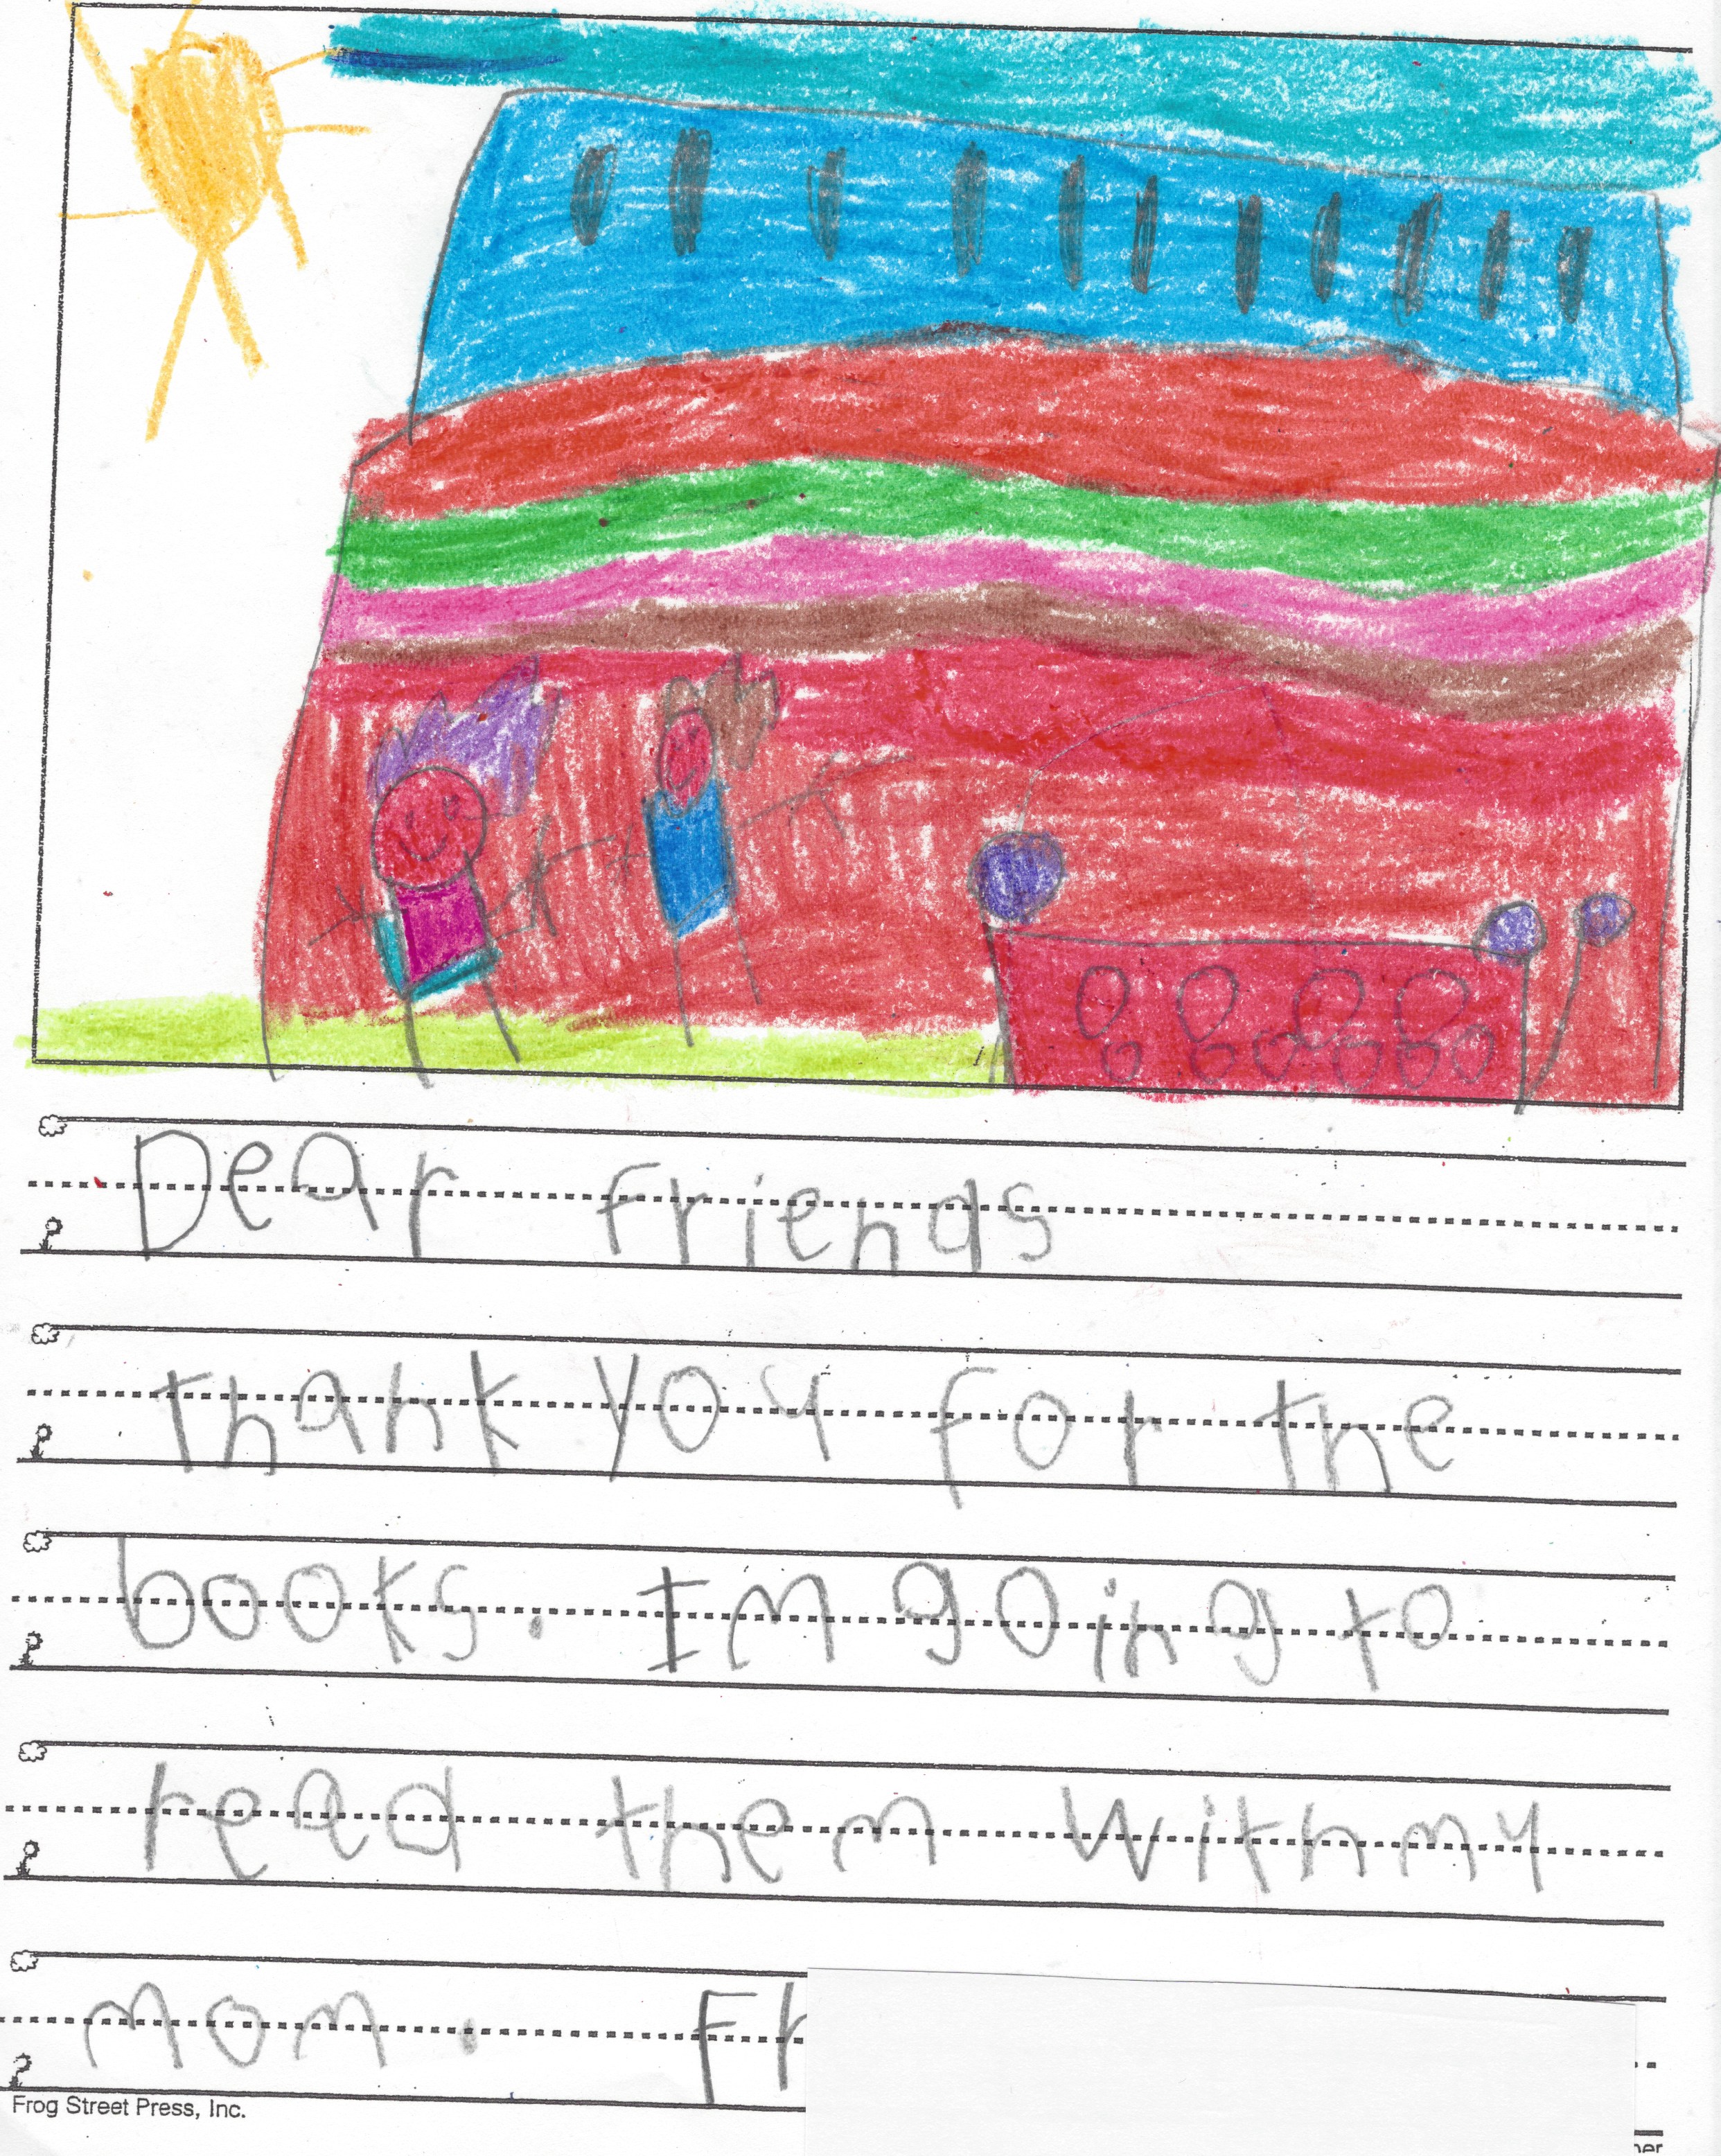 Dear friends
thank you for the
books. Im going to
read them with my
mom. Fr
Frog Street Press, Inc.